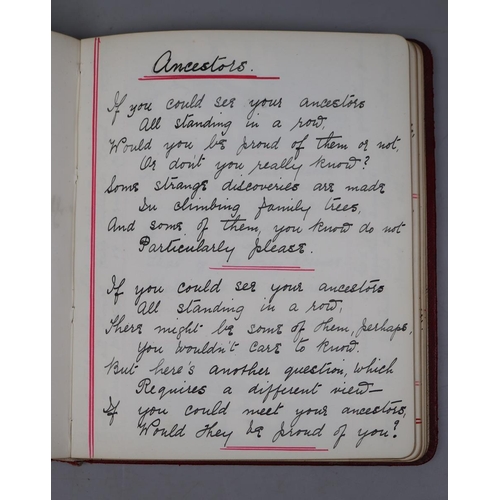 Ancestors.
If you could see your ancestors
All standing in a row,
Would you be proud of them or not,
Or don't you really know?
Some strange discoveries are made
In climbing family trees,
And some of them, you know do not
Particularly please.
If you could see your ancestors
All standing in a row,
There might be some of them, perhaps,
You wouldn't care to know.
But here's another question, which
Requires a different view—
If you could meet your ancestors,
Would they be proud of you?